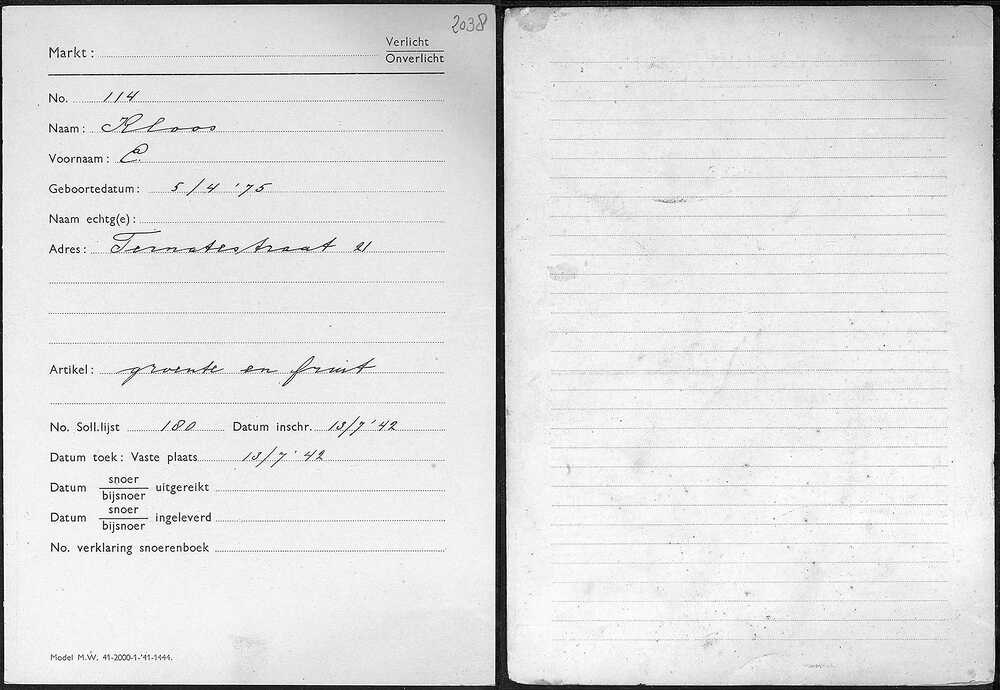 2038
Markt : Verlicht
Onverlicht
No. 114
Naam : Kloos
Voornaam : C.
Geboortedatum : 5/4 '75
Naam echtg(e) :
Adres : Ternatestraat 21
Artikel : groente en fruit
No. Soll.lijst 180 Datum inschr. 13/7 '42
Datum toek : Vaste plaats 13/7 '42
Datum snoer bijsnoer uitgereikt
Datum snoer bijsnoer ingeleverd
No. verklaring snoerenboek
Model M.W. 41-2000-1-'41-1444.